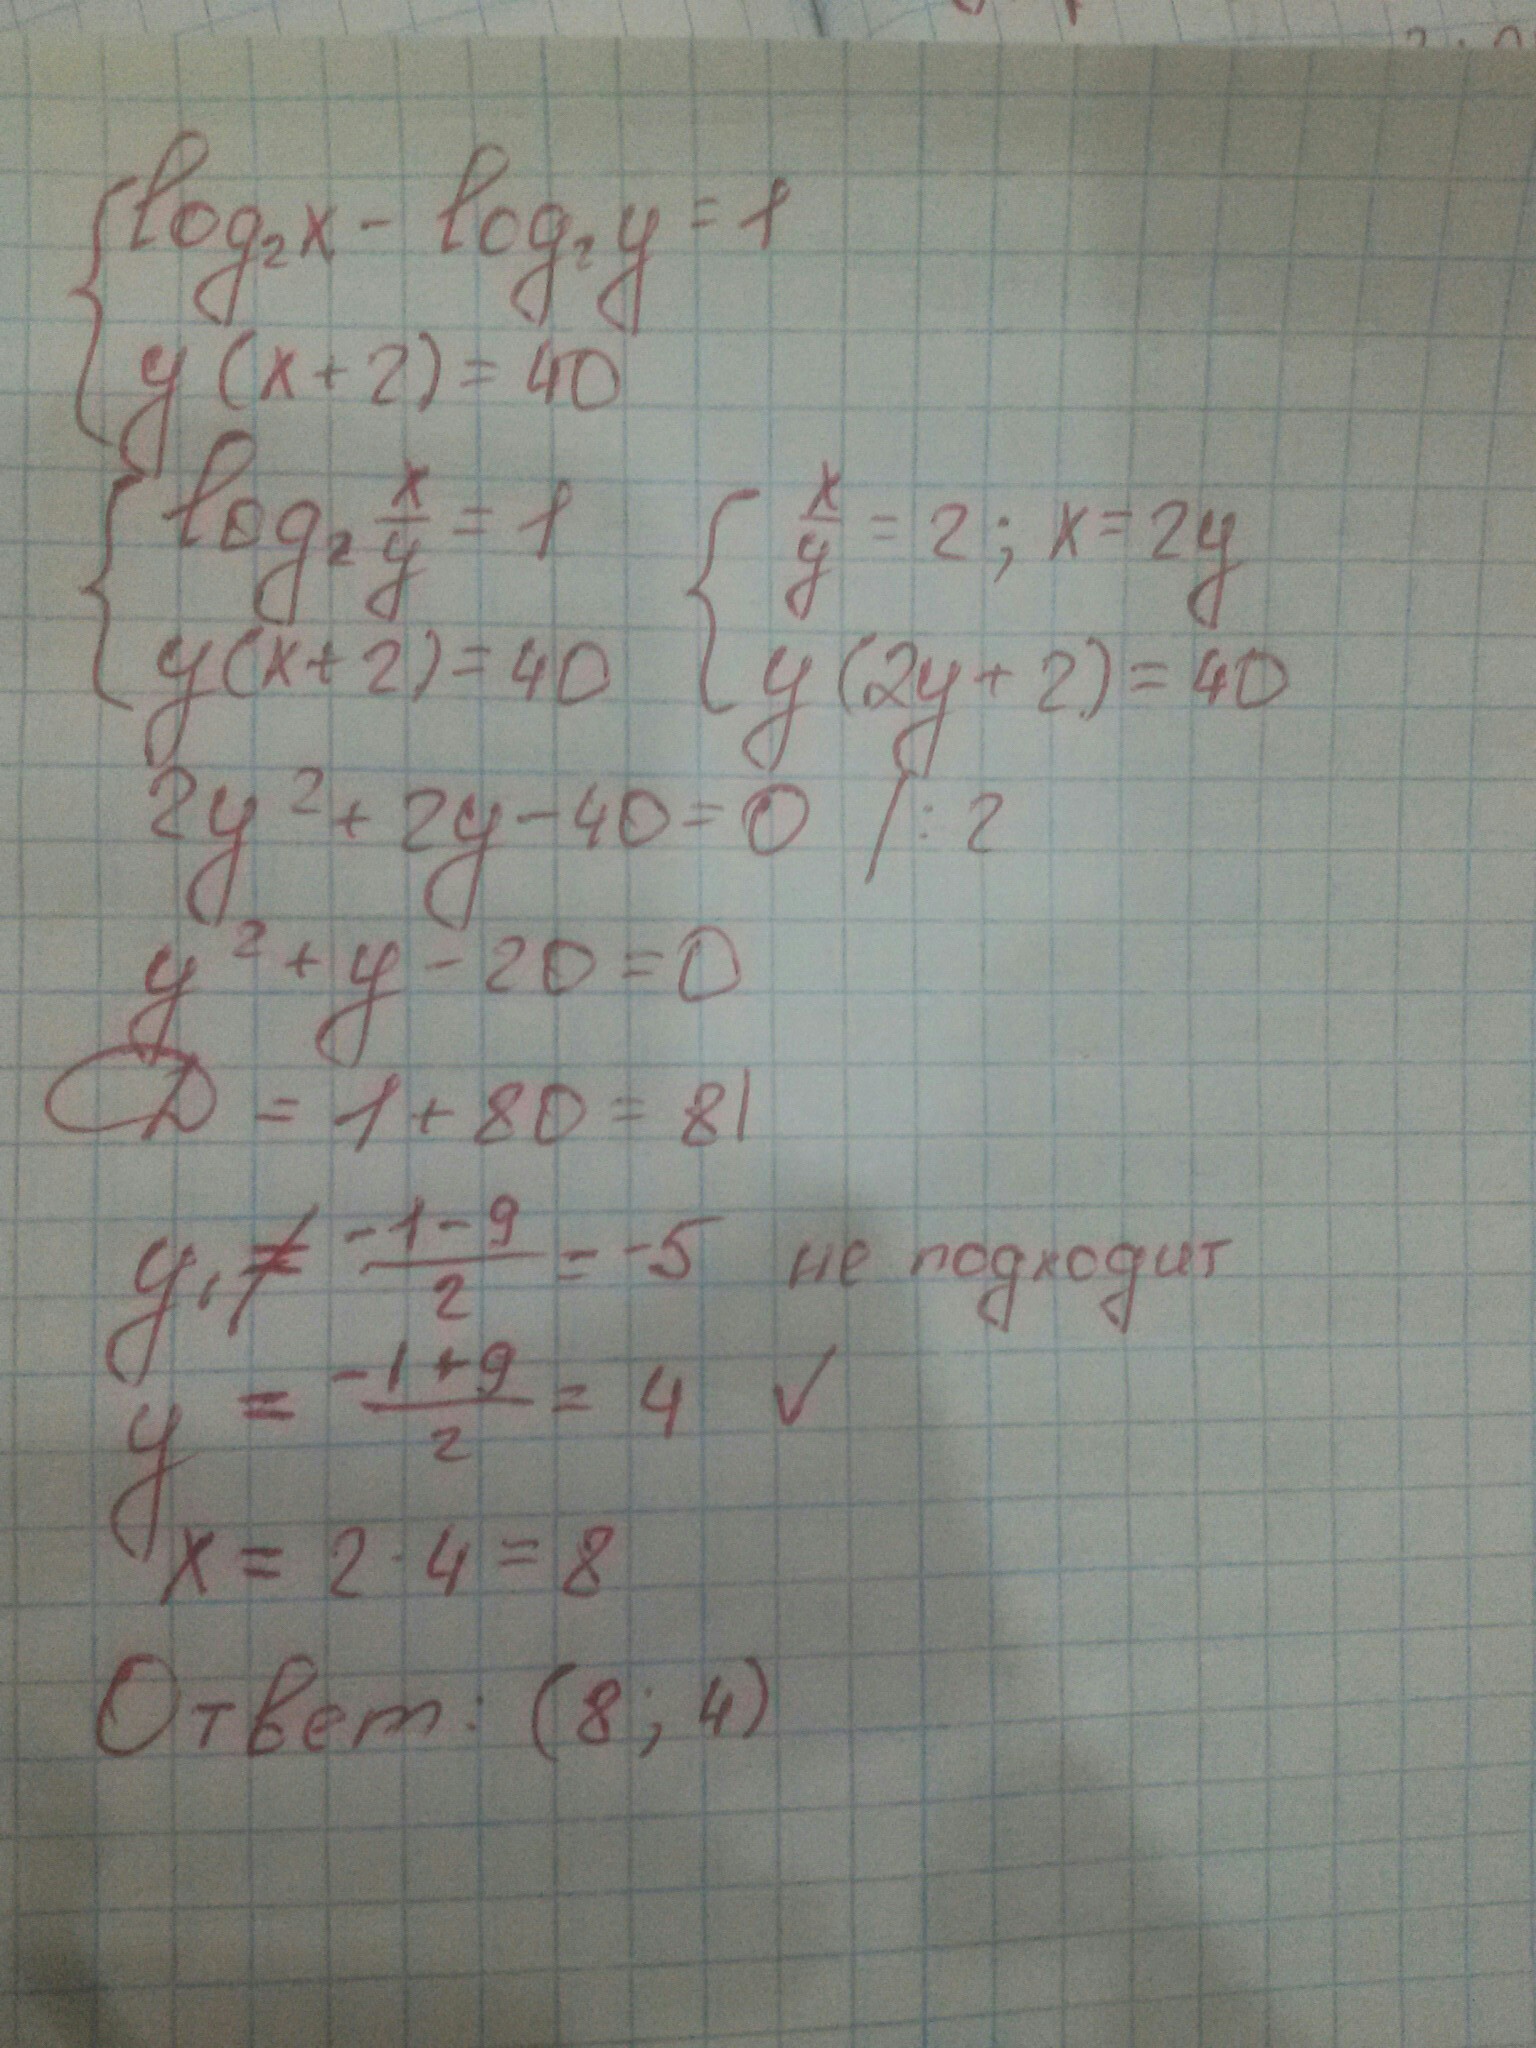 { log₂x - log₂y = 1
y(x+2) = 40
{ log₂ x/y = 1
y(x+2) = 40
{ x/y = 2; x = 2y
y(2y+2) = 40
2y² + 2y - 40 = 0 /:2
y² + y - 20 = 0
D = 1 + 80 = 81
y₁ ≠ (-1-9)/2 = -5 не подходит
y = (-1+9)/2 = 4 ✓
x = 2·4 = 8
Ответ: (8; 4)